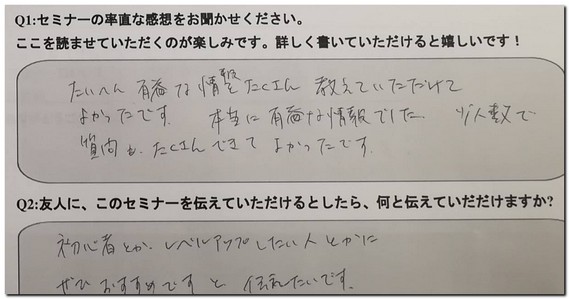 Q1:セミナーの率直な感想をお聞かせください。
ここを読ませていただくのが楽しみです。詳しく書いていただけると嬉しいです！
たいへん 有益な情報をたくさん 教えていただけて
よかったです。 本当に有益な情報でした。 少人数で
質問も、たくさんできて よかったです。
Q2:友人に、このセミナーを伝えていただけるとしたら、何と伝えていだだけますか?
初心者とか、レベルアップしたい人とかに
ぜひおすすめです と 伝えたいです。